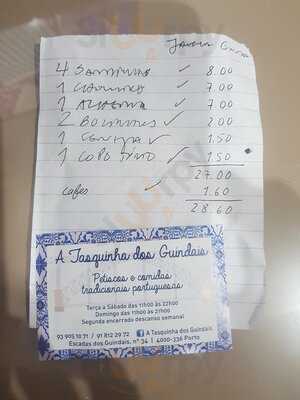 4 Sardinhas ✓ 8.00
1 ✓ 7.00
1 Alheira ✓ 7.00
2 ✓ 2.00
1 ✓ 1.50
1 Copo ✓ 1.50
27.00
cafes ✓ 1.60
28.60
A Tasquinha dos Guindais
Petiscos e comidas
tradicionais portuguesas
Terça a Sábado das 11h00 às 22h00
Domingo das 11h00 às 21h00
Segunda encerrado descanso semanal
93 905 10 71 / 91 812 29 72 A Tasquinha dos Guindais
Escadas dos Guindais, nº 34 | 4000-336 Porto